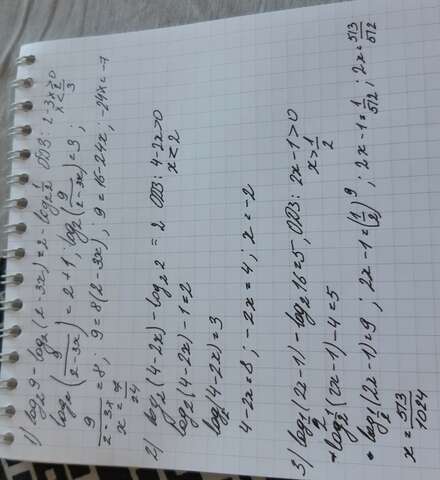 1) log₂9 - log₂(2-3x) = 2 - log₂ 1/2 ОДЗ: 2-3x>0
x < 2/3
log₂(9/(2-3x)) = 2+1; log₂(9/(2-3x)) = 3;
9/(2-3x) = 8; 9 = 8(2-3x); 9 = 16-24x; -24x = -7
x = 7/24
2) log₂(4-2x) - log₂2 = 2 ОДЗ: 4-2x>0
x < 2
log₂(4-2x) - 1 = 2
log₂(4-2x) = 3
4-2x = 8; -2x = 4; x = -2
3) log_1/2(2x-1) - log₂16 = 5, ОДЗ: 2x-1>0
x > 1/2
• log_1/2(2x-1) - 4 = 5
• log_1/2(2x-1) = 9; 2x-1 = (1/2)⁹; 2x-1 = 1/512; 2x = 513/512
x = 513/1024